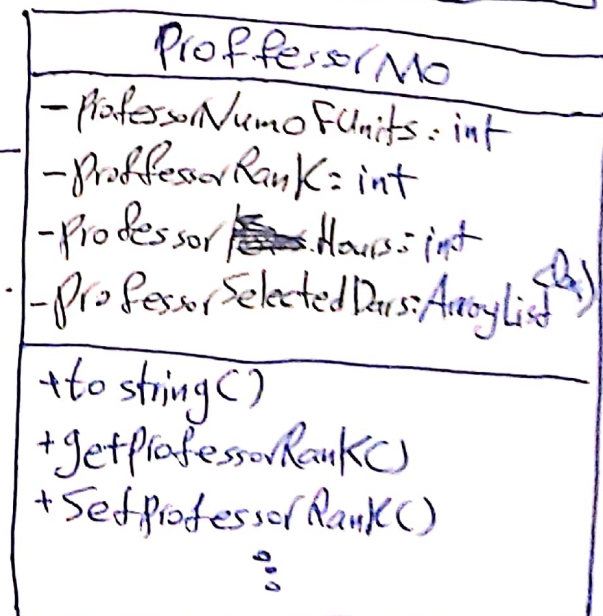 ProffessorMo
- ProfessorNumOfUnits: int
- ProffessorRank: int
- Professor Hours: int
- ProfessorSelectedDars: ArrayList
+ to string()
+ getProfessorRank()
+ SetProfessorRank()